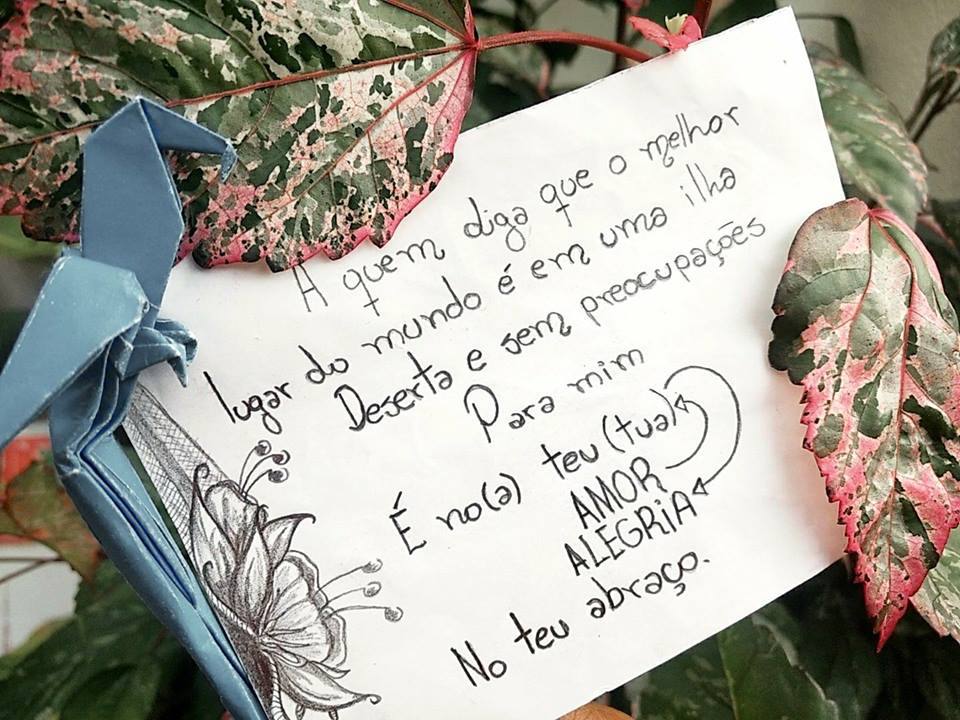 A quem diga que o melhor
lugar do mundo é em uma ilha
Deserta e sem preocupações
Para mim
É no(a) teu (tua)
AMOR
ALEGRIA
No teu abraço.